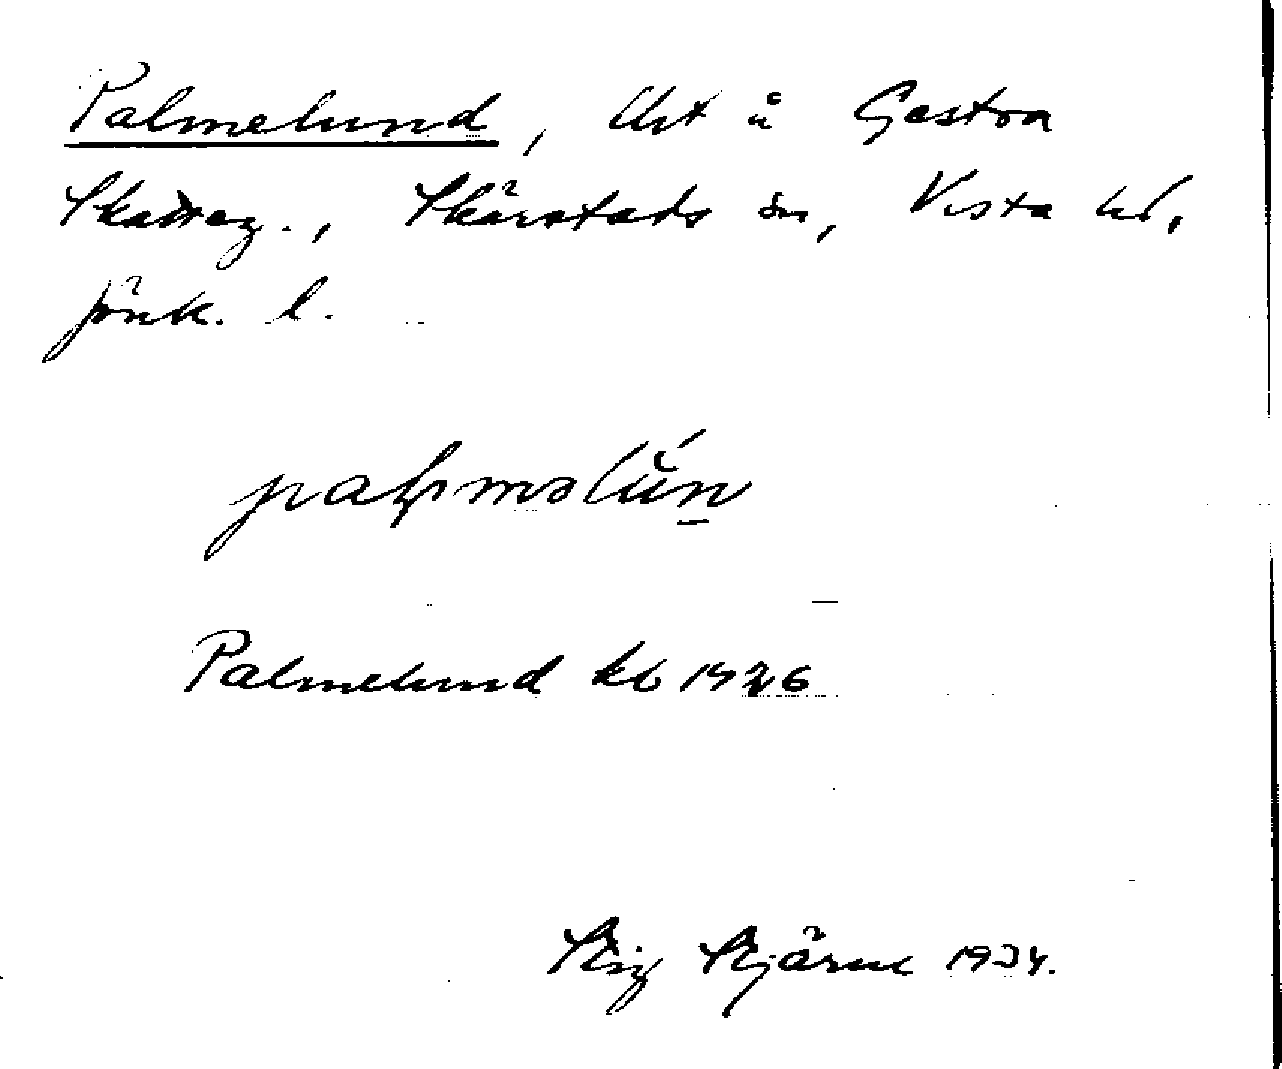 Palmelund, Urt å Gestra
Skatteg., Skärstads sn, Vista hd,
Jönk. l.
Palmelund kb 1926
Stig Stjärne 1934.